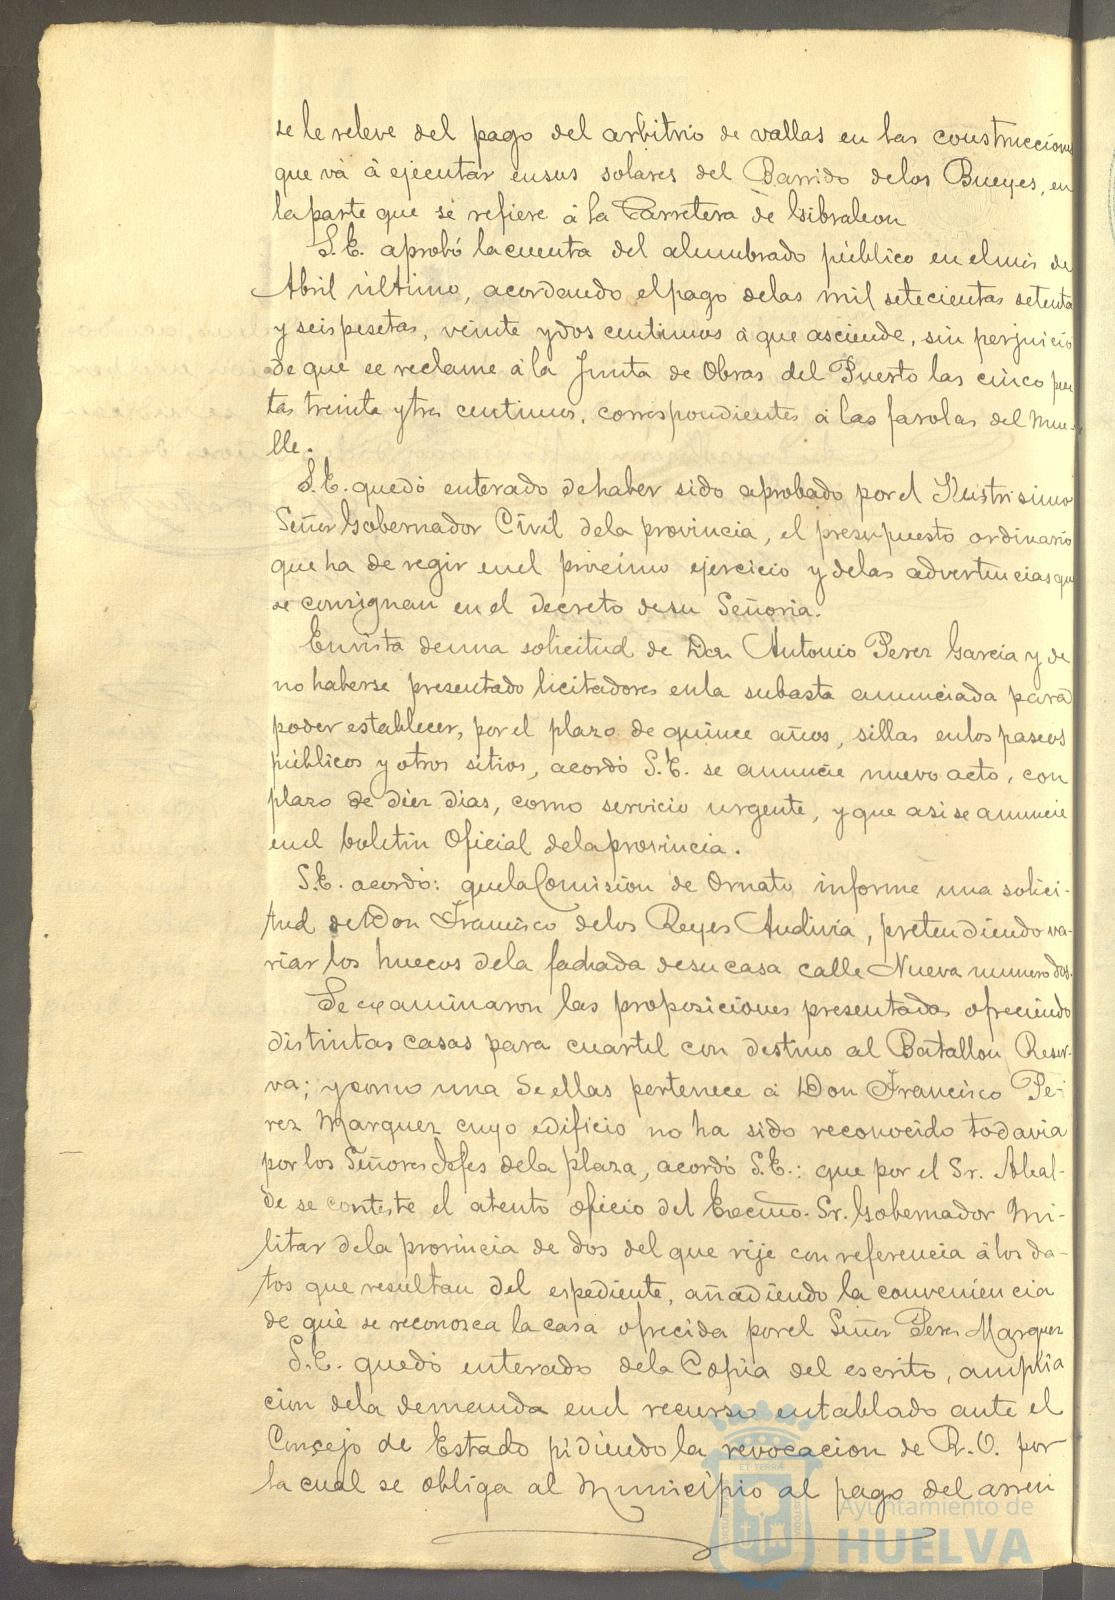 se le releve del pago del arbitrio de vallas en las construcciones
que vá á ejecutar en sus solares del Barrido de los Bueyes, en
la parte que se refiere á la Carretera de Gibraleon
S.E. aprobó la cuenta del alumbrado público en el mes de
Abril último, acordando el pago de las mil setecientas setenta
y seis pesetas, veinte y dos centimos á que asciende, sin perjuicio
de que se reclame á la Junta de Obras del Puerto las cinco pese-
tas treinta y tres centimos, correspondientes á las farolas del Mue-
lle.
S.E. quedó enterado de haber sido aprobado por el Ilustrisimo
Señor Gobernador Civil de la provincia, el presupuesto ordinario
que ha de regir en el procsimo ejercicio y de las advertencias que
se consignan en el decreto de su Señoria.
En vista de una solicitud de Don Antonio Perez Garcia y de
no haberse presentado licitadores en la subasta anunciada para
poder establecer, por el plazo de quince años, sillas en los paseos
públicos y otros sitios, acordó S.E. se anuncie nuevo acto, con
plazo de diez dias, como servicio urgente, y que asi se anuncie
en el boletin Oficial de la provincia.
S.E. acordó: que la Comision de Ornato informe una solici-
tud de Don Francisco de los Reyes Audivia, pretendiendo va-
riar los huecos de la fachada de su casa calle Nueva numero dos.
Se examinaron las proposiciones presentadas ofreciendo
distintas casas para cuartel con destino al Batallon Reser-
va; y como una de ellas pertenece á Don Francisco Pe-
rez Marquez cuyo edificio no ha sido reconocido todavia
por los Señores Jefes de la plaza, acordó S.E.: que por el Sr. Alcal-
de se conteste el atento oficio del Excmo. Sr. Gobernador Mi-
litar de la provincia de dos del que rije con referencia á los da-
tos que resultan del espediente, añadiendo la conveniencia
de que se reconozca la casa ofrecida por el Señor Perez Marquez
S.E. quedó enterado de la Copia del escrito, amplia
cion de la demanda en el recurso entablado ante el
Consejo de Estado pidiendo la revocacion de R.O. por
la cual se obliga al Municipio al pago del arren
Ayuntamiento de
HUELVA